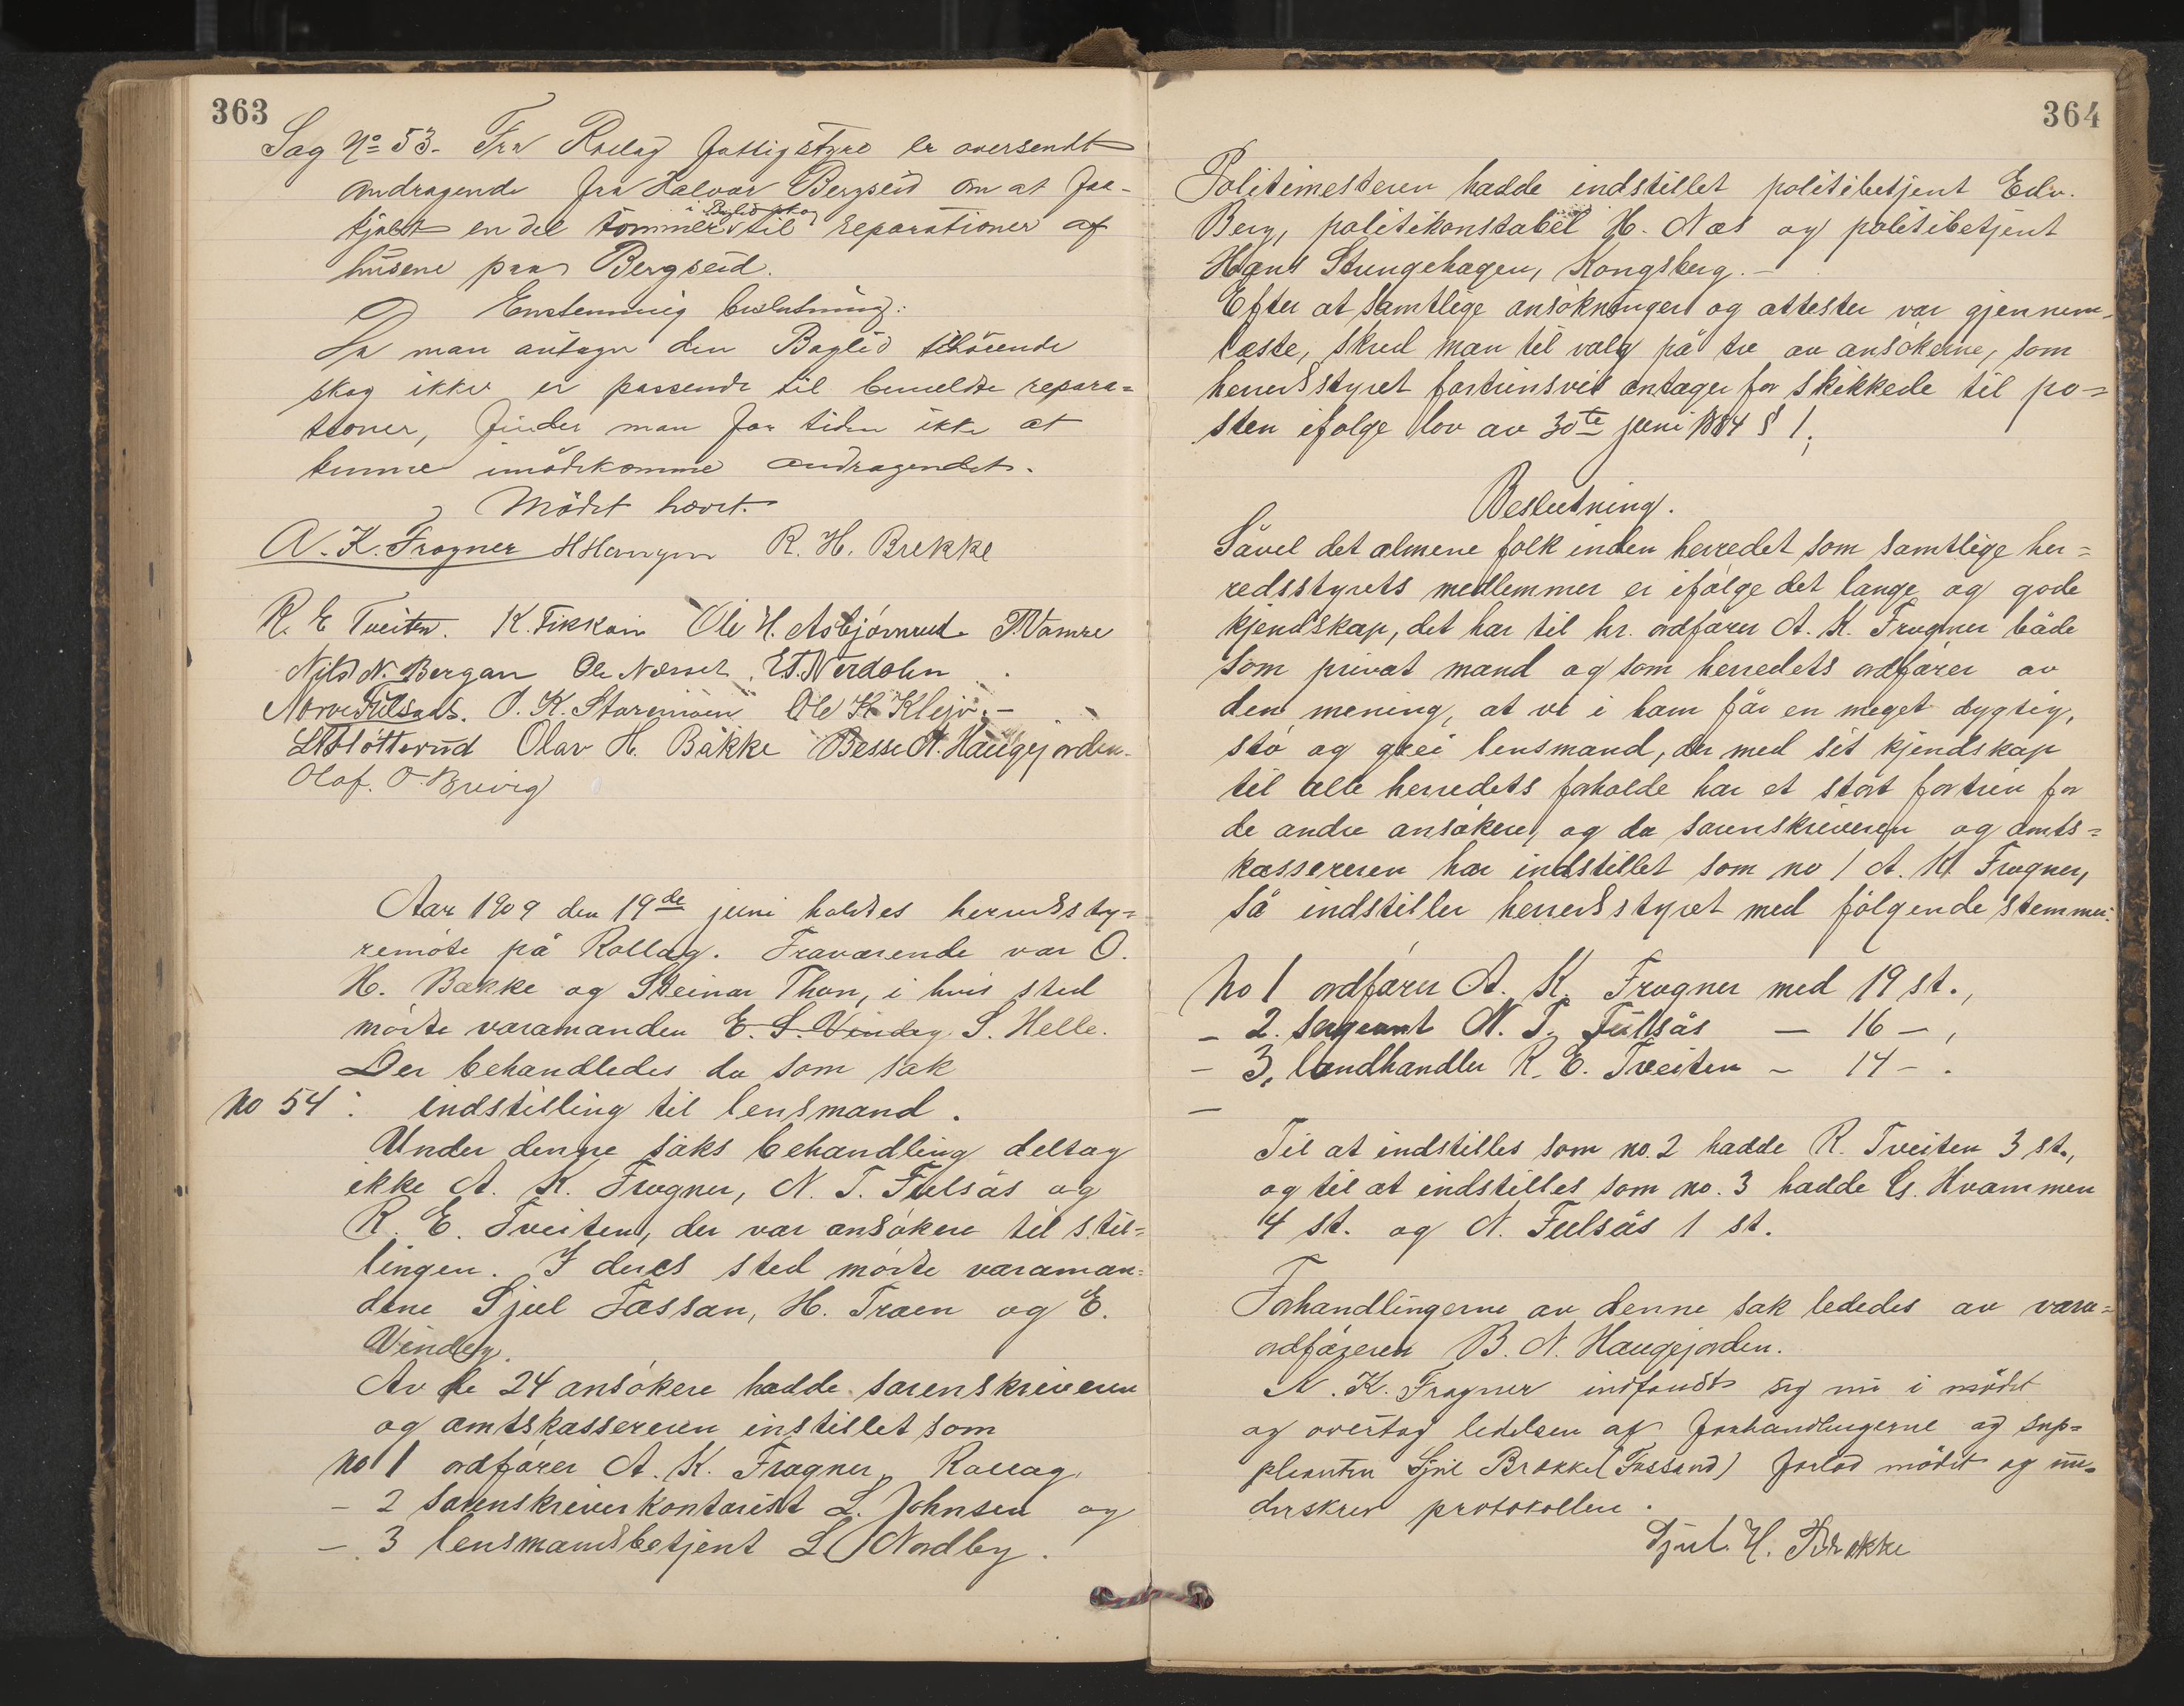 363
Sag No 53. Fra Rollag fattigstyre er oversendt
andragende fra Halvor Bergseid om at faa
i Baglid skog
kjøbt en del tømmer til reparationer af
husene paa Bergseid.
Enstemmig beslutning:
Da man antager den Baglid tilhørende
skog ikke er passende til bemeldte repara=
tioner, finder man for tiden ikke at
kunne imødekomme andragendet.
Mødet hævet.
A. K. Frogner R. H. Brekke
R. E Tveiten. K. Fikkan Ole H. Asbjørnrud T. Vamre
Nils N. Bergan Ole Næsset. E. T. Nerdalen
Narve Fulsaas. O. K. Staremoen Ole K. Klejv. –
Olav H. Bakke Besse N. Haugejorden.
Olaf. O. Brevig
Aar 1909 den 19de juni holdtes herredssty=
remøte på Rollag. Fraværende var O.
H. Bakke og Steinar Thon, i hvis sted
møtte varamanden E. S. Vindeg S. Helle.
Der behandledes da som sak
No 54: indstilling til lensmand.
Under denne saks behandling deltog
ikke A. K. Frogner, N. T. Fulsås og
R. E. Tveiten, der var ansøkere til stil=
lingen. I deres sted møtte varaman=
dene Gjul Fossan, H. Traen og E.
Vindeg.
Av de 24 ansøkere hadde sorenskriveren
og amtskassereren instillet som
No 1 ordfører A. K. Frogner, Rollag,
– 2 sorenskriverkontorist L. Johnsen og
– 3 lensmandsbetjent L. Nordby.
364
Politimesteren hadde indstillet politibetjent Edv.
Berg, politikonstabel H. Næs og politibetjent
Hans Stungehagen, Kongsberg. –
Efter at samtlige ansøkninger og attester var gjennem-
læste, skred man til valg på tre av ansøkerne, som
herredsstyret fortrinsvis antager for skikkede til po=
sten ifølge lov av 30te juni 1884 § 1;
Beslutning.
Såvel det almene folk inden herredet som samtlige her=
redsstyrets medlemmer er ifølge det lange og gode
kjendskap, det har til hr. ordfører A. K. Frogner både
som privat mand og som herredets ordfører av
den mening, at vi i ham får en meget dygtig,
stø og grei lensmand, der med sit kjendskap
til alle herredets forholde har et stort fortrin for
de andre ansøkere, og da sorenskriveren og amts=
kassereren har indstillet som no 1 A. K. Frogner,
så indstiller herredsstyret med følgende stemmer:
No 1 ordfører A. K. Frogner med 19 st.,
– 2. sergeant N. T. Fulsås – 16 – ,
– 3. landhandler R. E. Tveiten – 14 – .
–
Til at indstilles som no. 2 hadde R. Tveiten 3 st.,
og til at indstilles som no. 3 hadde G. Hvammen
4 st. og N. Fulsås 1 st.
Forhandlingerne av denne sak lededes av vara=
ordføreren B. N. Haugejorden.
A. K. Frogner indfandt sig nu i mødet
og overtog ledelsen af forhandlingerne og sup=
pleanten Gjul Brekke (Fossand) forlod mødet og un=
derskrev protokollen.
Gjul. H. Brekke